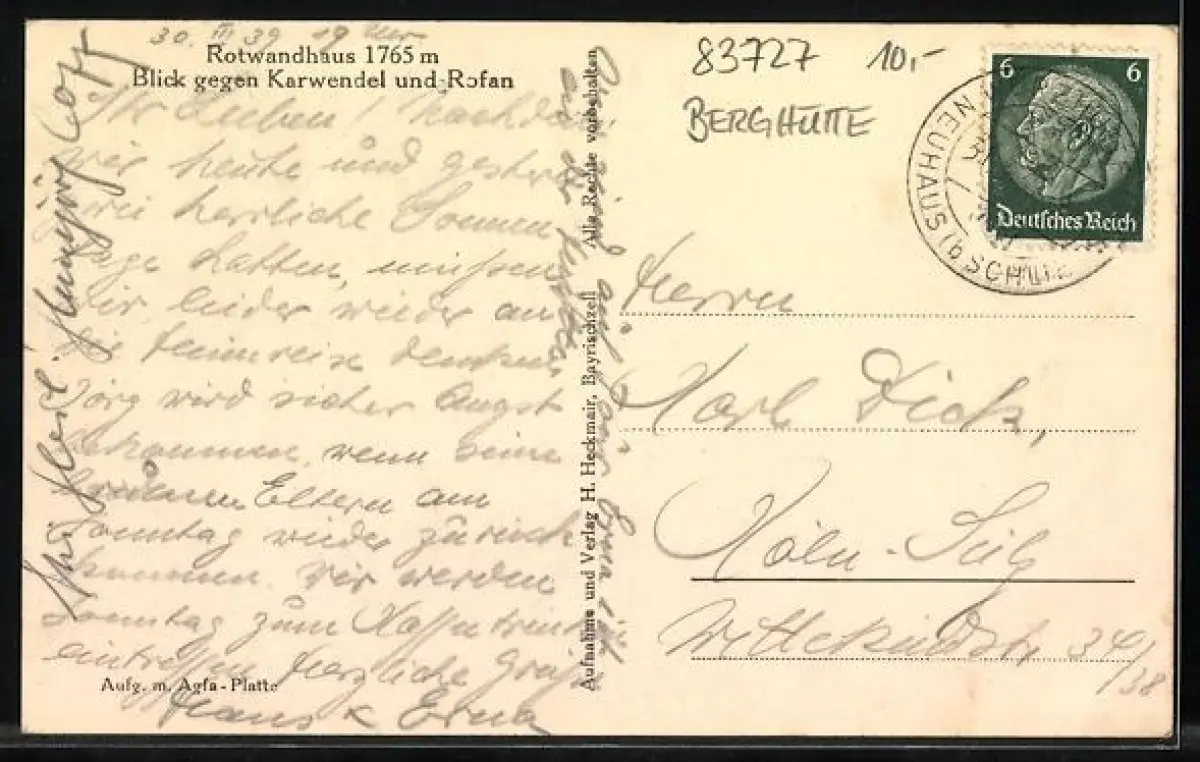 30. III 39 19 Uhr
Rotwandhaus 1765 m
Blick gegen Karwendel und Rofan
Ihr Lieben! Nachdem
wir heute und gestern
zwei herrliche Sonnen
tage hatten, müssen
wir leider wieder an
die Heimreise denken.
Jörg wird sicher Angst
bekommen, wenn seine
braunen Eltern am
Sonntag wieder zurück
kommen. Wir werden
Sonntag zum Kaffeetrinken
eintreffen. Herzliche Grüße
Hans & Erna
Aufg. m. Agfa-Platte
Aufnahme und Verlag H. Heckmair, Bayrischzell Alle Rechte vorbehalten
83727 10,-
BERGHÜTTE
6 6
Deutsches Reich
NEUHAUS (b SCHLIE
Herrn
Karl Dick,
Köln-Sülz
Wittekindstr. 34/
38